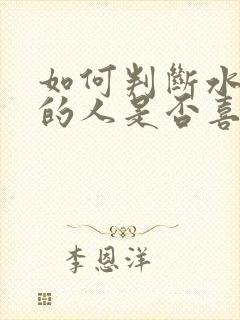 如何判斷水
的人是否喜
李恩洋